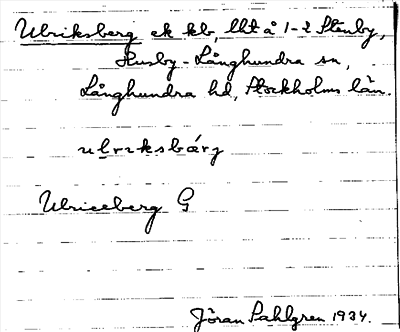 Ulriksberg ek kb, lht å 1-2 Stenby,
Husby-Långhundra sn,
Långhundra hd, Stockholms län.
ulrɩksbærj
Ulriceberg G
Jöran Sahlgren 1934.